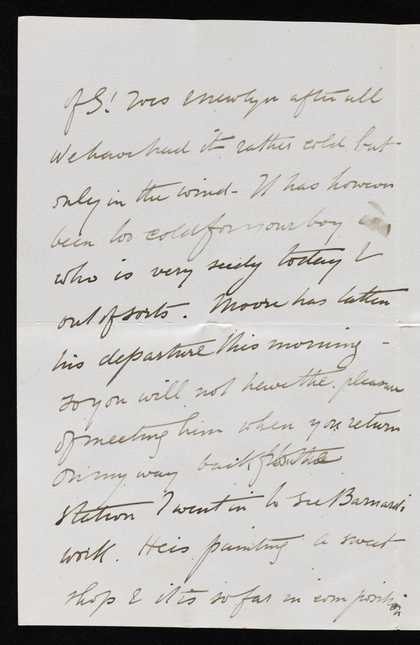 of S! Ives & Newlyn after all
We have had it rather cold but
only in the wind - It has however
been too cold for your boy
who is very seedy today &
out of sorts. Moore has taken
his departure this morning -
so you will not have the pleasure
of meeting him when you return
On my way back from the
station I went in to see Barnards
work. He is painting a sweet
shop & it is so far in composition